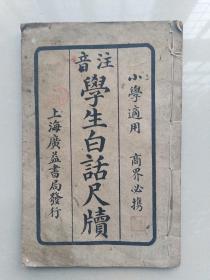 小學適用 商界必携
注音
學生白話尺牘
上海廣益書局發行